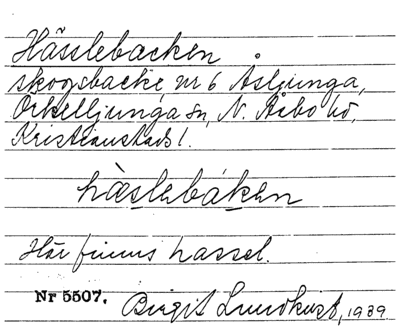 Hässlebacken
skogsbacke, nr 6 Åsljunga,
Örkelljunga sn, N. Åsbo hd,
Kristianstads l.
hæslebáken
Här finns hassel.
Nr 5507. Birgit Lundkvist, 1939